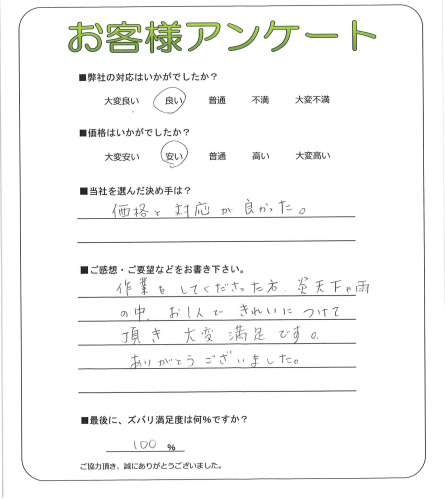 お客様アンケート
■弊社の対応はいかがでしたか？
大変良い 良い 普通 不満 大変不満
■価格はいかがでしたか？
大変安い 安い 普通 高い 大変高い
■当社を選んだ決め手は？
価格と対応が良かった。
■ご感想・ご要望などをお書き下さい。
作業をしてくださった方、炎天下や雨
の中、お1人できれいにつけて
頂き 大変満足です。
ありがとうございました。
■最後に、ズバリ満足度は何％ですか？
100 ％
ご協力頂き、誠にありがとうございました。